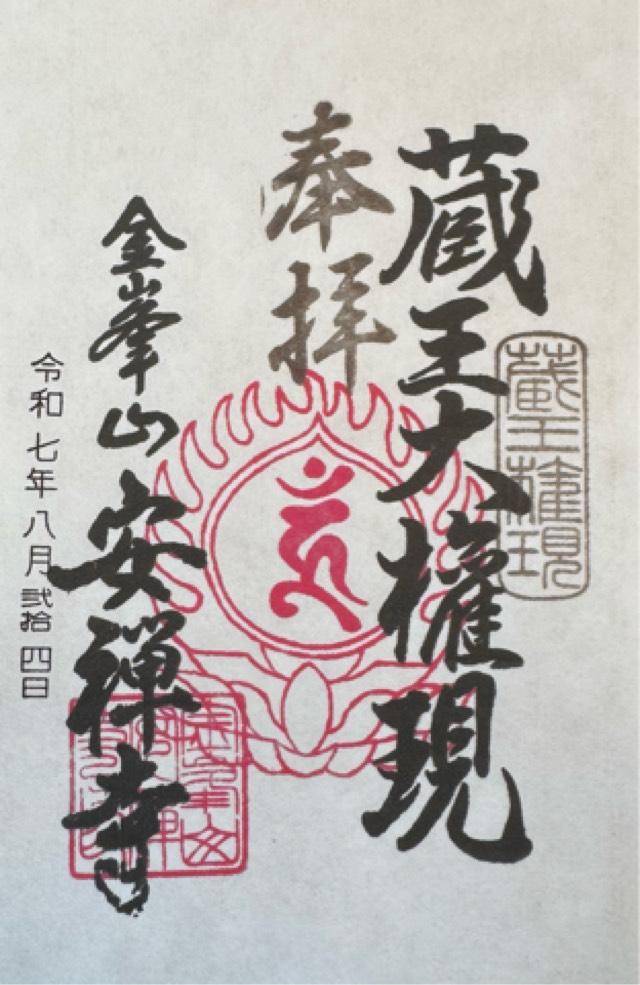 蔵王大權現
蔵王権現
奉拝
金峯山安禅寺
令和七年八月弐拾四日